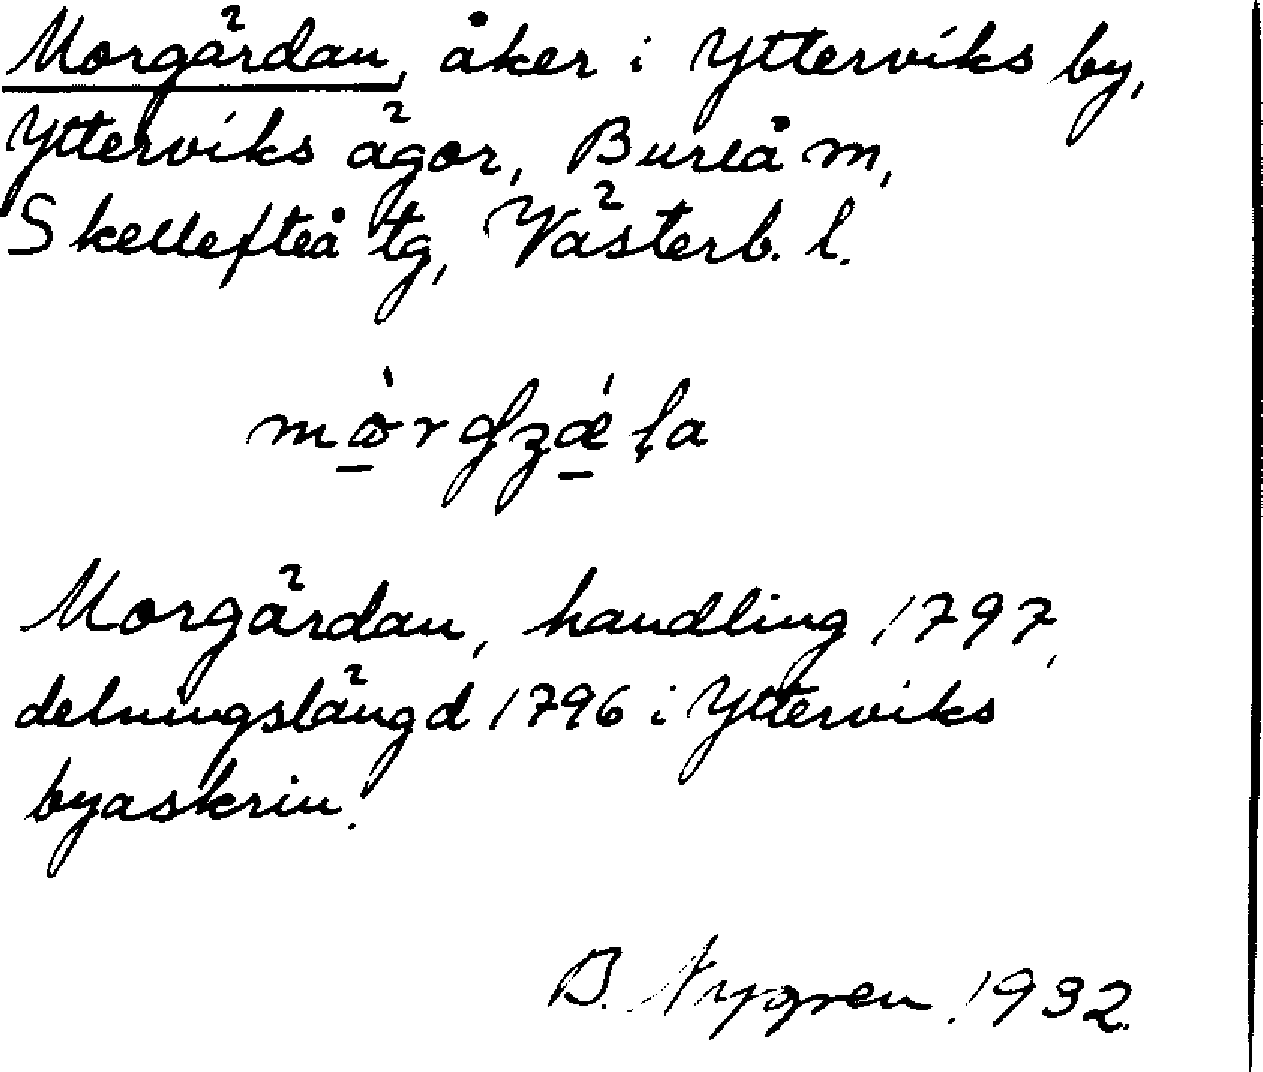 Morgärdan, åker i Ytterviks by,
Ytterviks ägor, Bureå m,
Skellefteå tg, Västerb. l.
Morgärdan, handling 1797,
delningslängd 1796 i Ytterviks
byaskrin.
B. Nygren. 1932.